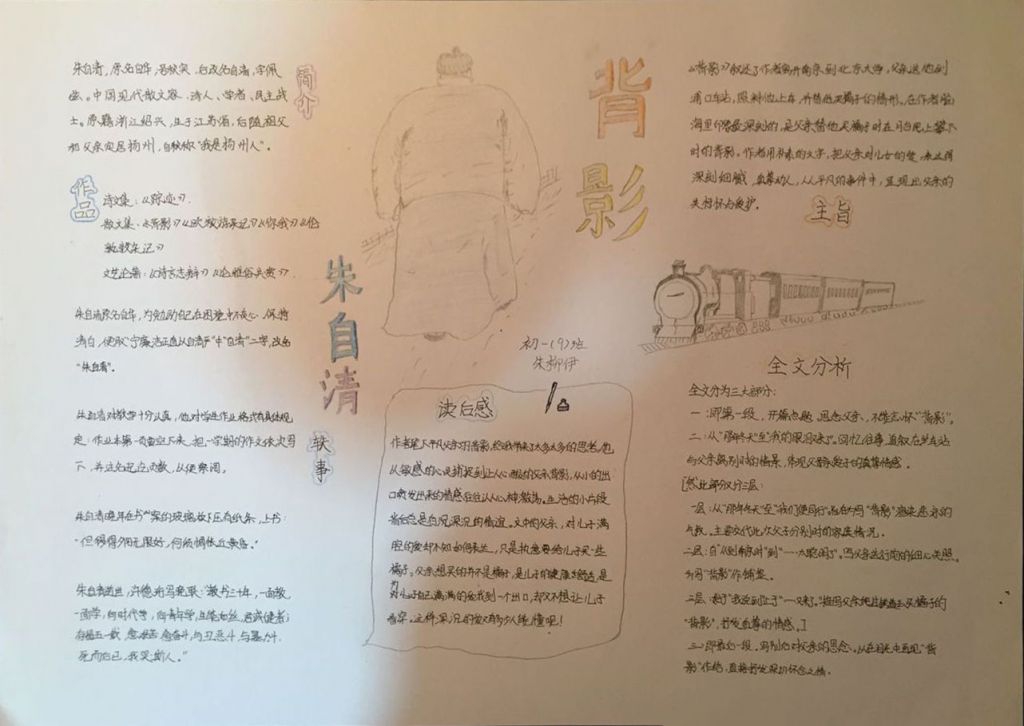 简介
朱自清，原名自华，号秋实，后改名自清，字佩
弦。中国现代散文家、诗人、学者、民主战
士。原籍浙江绍兴，生于江苏省，后随祖父
和父亲定居扬州，自称"我是扬州人"。
作品
诗文集：《踪迹》.
散文集：《背影》《欧游杂记》《你我》《伦
敦杂记》
文艺论著：《诗言志辨》《论雅俗共赏》.
朱自清原名自华，为勉励自己在困境中不灰心，保持
清白，便取"宁廉洁正直以自清乎"中"自清"二字，改名
"朱自清"。
轶事
朱自清对教学十分认真，他对学生作业格式有具体规
定：作业本第一页空下来，把一学期的作文依次写
下，并注名起迄页数，以便查阅。
朱自清晚年在书案的玻璃放下压有纸条，上书：
"但得夕阳无限好，何须惆怅近黄昏。"
朱自清逝世，许德珩写挽联："教书三十年，一面教，
一面学，向时代学，向青年学，
死而后已，我哭斯人。"
背影
朱自清
初一(9)班
朱柳伊
读后感
作者笔下平凡父亲的背影，给我带来了太多太多的思考，他
从敏感的心灵捕捉到让人心酸的父亲背影，从小的出
口喷发出来的情感往往让人心神激荡。生活的小片段
背后总是白见深沉的痛道。文中的父亲，对儿子满
腔的爱却不知如何表达，只是执意要给儿子买一些
橘子，父亲想买的并不是橘子，是儿子的健康与舒适，是
为儿子自己满满的爱找到一个出口，却又不想让儿子
看穿。这样深沉的爱又有多少人能懂呢！
《背影》叙述了作者离开南京到北京大学，父亲送他到
浦口车站，照料他上车，并替他买橘子的情形。在作者脑
海里印象最深刻的，是父亲替他买橘子时在月台爬上攀下
时的背影。作者用朴素的文字，把父亲对儿女的爱，表达得
深刻细腻，真挚动人，从平凡的事件中，呈现出父亲的
关怀和爱护。
主旨
全文分析
全文分为三大部分：
一：即第一段，开篇点题，思念父亲，不能忘怀"背影"。
二：从"那年冬天"至"我的眼泪又来了。"回忆往事，直叙在火车站
与父亲离别时的情景，体现父替亲爱子的真挚情感。
[然此部分又分三层：
一层：从"那年冬天"至"我们便同行。"
气氛。主要交代此次父子分别时的家庭情况。
二层：自"到南京时"到"……聪明了"。写父亲送行前的细心关照，
为写"背影"作铺垫。
"背影"，抒发真挚的情感。]
三：即最后一段，写别后对父亲的思念。从在泪光中再现"背
影"作结，直接抒发深切怀念之情。